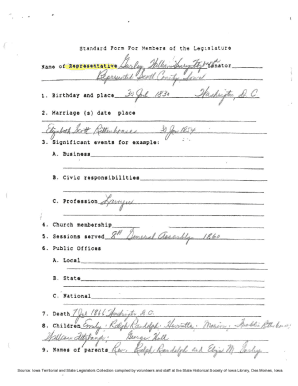 Standard Form For Members of the Legislature
Name of Representative Gurley, William Senator
Represented Scott County, Iowa
1. Birthday and place 30 Jul 1830 Washington, D.C.
2. Marriage (s) date place
Elizabeth Scott Rittenhouse 30 Jan 1854
3. Significant events for example:
A. Business
B. Civic responsibilities
C. Profession Lawyer
4. Church membership
5. Sessions served 8th General Assembly 1860
6. Public Offices
A. Local
B. State
C. National
7. Death 7 Jul 1866 Washington D.C.
8. Children Emily - Ralph Randolph - Henrietta - Marion -
William - George Hall
9. Names of parents Rev. Ralph Randolph and Eliza M. Gurley
Source: Iowa Territorial and State Legislators Collection compiled by volunteers and staff at the State Historical Society of Iowa Library, Des Moines, Iowa.